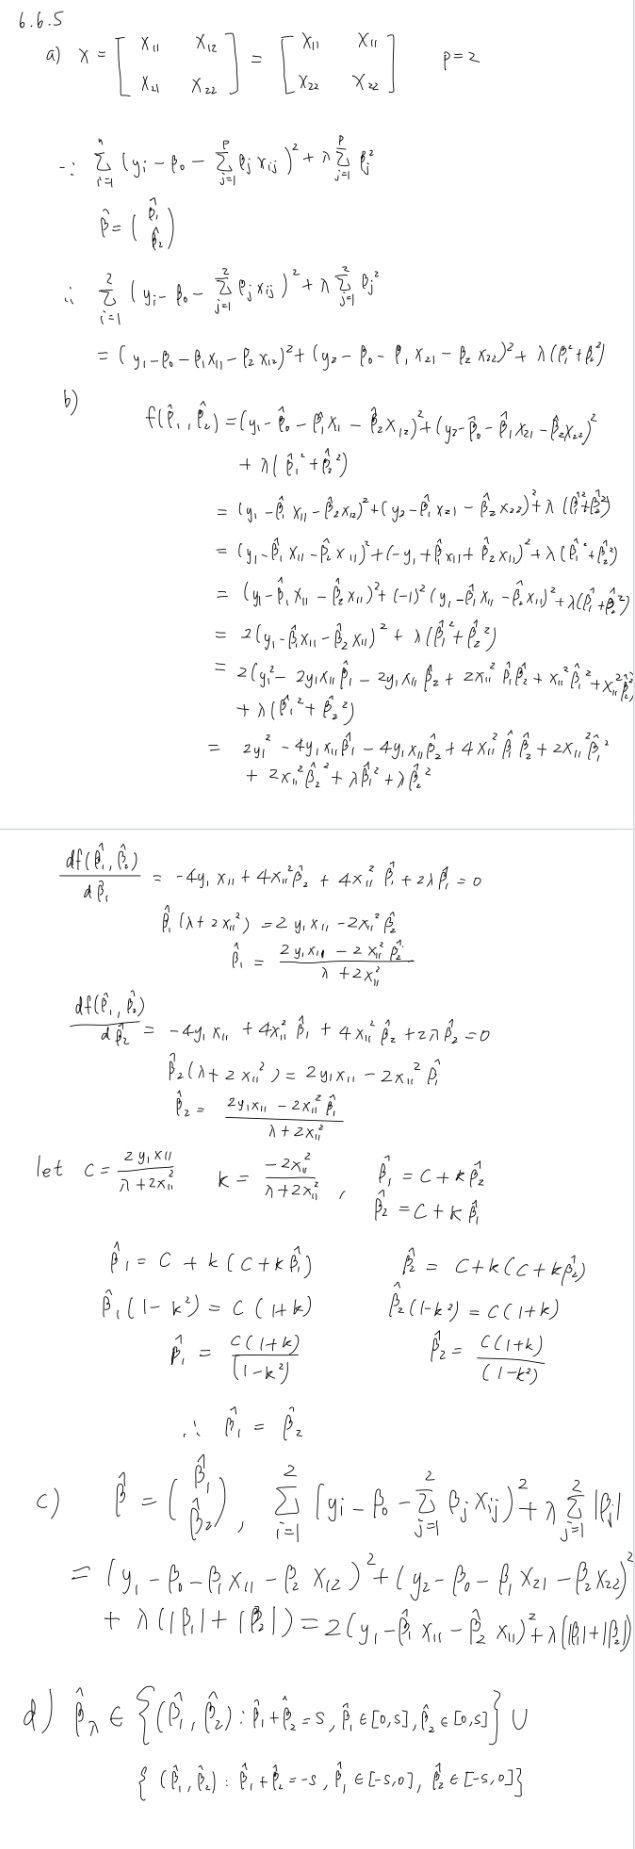 6.6.5
a) X = [ x₁₁ x₁₂ ; x₂₁ x₂₂ ] = [ x₁₁ x₁₁ ; x₂₂ x₂₂ ] p=2
∵ Σᵢ₌₁ⁿ (yᵢ - β₀ - Σⱼ₌₁ᵖ βⱼ xᵢⱼ)² + λ Σⱼ₌₁ᵖ βⱼ²
β̂ = ( β̂₁ ; β̂₂ )
∴ Σᵢ₌₁² (yᵢ - β₀ - Σⱼ₌₁² βⱼ xᵢⱼ)² + λ Σⱼ₌₁² βⱼ²
= (y₁ - β₀ - β₁x₁₁ - β₂x₁₂)² + (y₂ - β₀ - β₁x₂₁ - β₂x₂₂)² + λ(β₁² + β₂²)
b) f(β̂₁, β̂₂) = (y₁ - β̂₀ - β̂₁x₁ - β̂₂x₁₂)² + (y₂ - β̂₀ - β̂₁x₂₁ - β̂₂x₂₂)²
+ λ(β̂₁² + β̂₂²)
= (y₁ - β̂₁x₁₁ - β̂₂x₁₂)² + (y₂ - β̂₁x₂₁ - β̂₂x₂₂)² + λ(β̂₁² + β̂₂²)
= (y₁ - β̂₁x₁₁ - β̂₂x₁₁)² + (-y₁ + β̂₁x₁₁ + β̂₂x₁₁)² + λ(β̂₁² + β̂₂²)
= (y₁ - β̂₁x₁₁ - β̂₂x₁₁)² + (-1)²(y₁ - β̂₁x₁₁ - β̂₂x₁₁)² + λ(β̂₁² + β̂₂²)
= 2(y₁ - β̂₁x₁₁ - β̂₂x₁₁)² + λ(β̂₁² + β̂₂²)
= 2(y₁² - 2y₁x₁₁β̂₁ - 2y₁x₁₁β̂₂ + 2x₁₁²β̂₁β̂₂ + x₁₁²β̂₁² + x₁₁²β̂₂²)
+ λ(β̂₁² + β̂₂²)
= 2y₁² - 4y₁x₁₁β̂₁ - 4y₁x₁₁β̂₂ + 4x₁₁²β̂₁β̂₂ + 2x₁₁²β̂₁²
+ 2x₁₁²β̂₂² + λβ̂₁² + λβ̂₂²
df(β̂₁, β̂₂) / dβ̂₁ = -4y₁x₁₁ + 4x₁₁²β̂₂ + 4x₁₁²β̂₁ + 2λβ̂₁ = 0
β̂₁(λ + 2x₁₁²) = 2y₁x₁₁ - 2x₁₁²β̂₂
β̂₁ = (2y₁x₁₁ - 2x₁₁²β̂₂) / (λ + 2x₁₁²)
df(β̂₁, β̂₂) / dβ̂₂ = -4y₁x₁₁ + 4x₁₁²β̂₁ + 4x₁₁²β̂₂ + 2λβ̂₂ = 0
β̂₂(λ + 2x₁₁²) = 2y₁x₁₁ - 2x₁₁²β̂₁
β̂₂ = (2y₁x₁₁ - 2x₁₁²β̂₁) / (λ + 2x₁₁²)
let c = 2y₁x₁₁ / (λ + 2x₁₁²) k = -2x₁₁² / (λ + 2x₁₁²) , β̂₁ = c + kβ̂₂
β̂₂ = c + kβ̂₁
β̂₁ = c + k(c + kβ̂₁) β̂₂ = c + k(c + kβ̂₂)
β̂₁(1 - k²) = c(1 + k) β̂₂(1 - k²) = c(1 + k)
β̂₁ = c(1 + k) / (1 - k²) β̂₂ = c(1 + k) / (1 - k²)
∴ β̂₁ = β̂₂
c) β̂ = ( β̂₁ ; β̂₂ ), Σᵢ₌₁² (yᵢ - β₀ - Σⱼ₌₁² βⱼ xᵢⱼ)² + λ Σⱼ₌₁² |βⱼ|
= (y₁ - β₀ - β₁x₁₁ - β₂x₁₂)² + (y₂ - β₀ - β₁x₂₁ - β₂x₂₂)²
+ λ(|β₁| + |β₂|) = 2(y₁ - β̂₁x₁₁ - β̂₂x₁₁)² + λ(|β₁| + |β₂|)
d) β̂_λ ∈ {(β̂₁, β̂₂) : β̂₁ + β̂₂ = s, β̂₁ ∈ [0,s], β̂₂ ∈ [0,s]} ∪
{(β̂₁, β̂₂) : β̂₁ + β̂₂ = -s, β̂₁ ∈ [-s,0], β̂₂ ∈ [-s,0]}